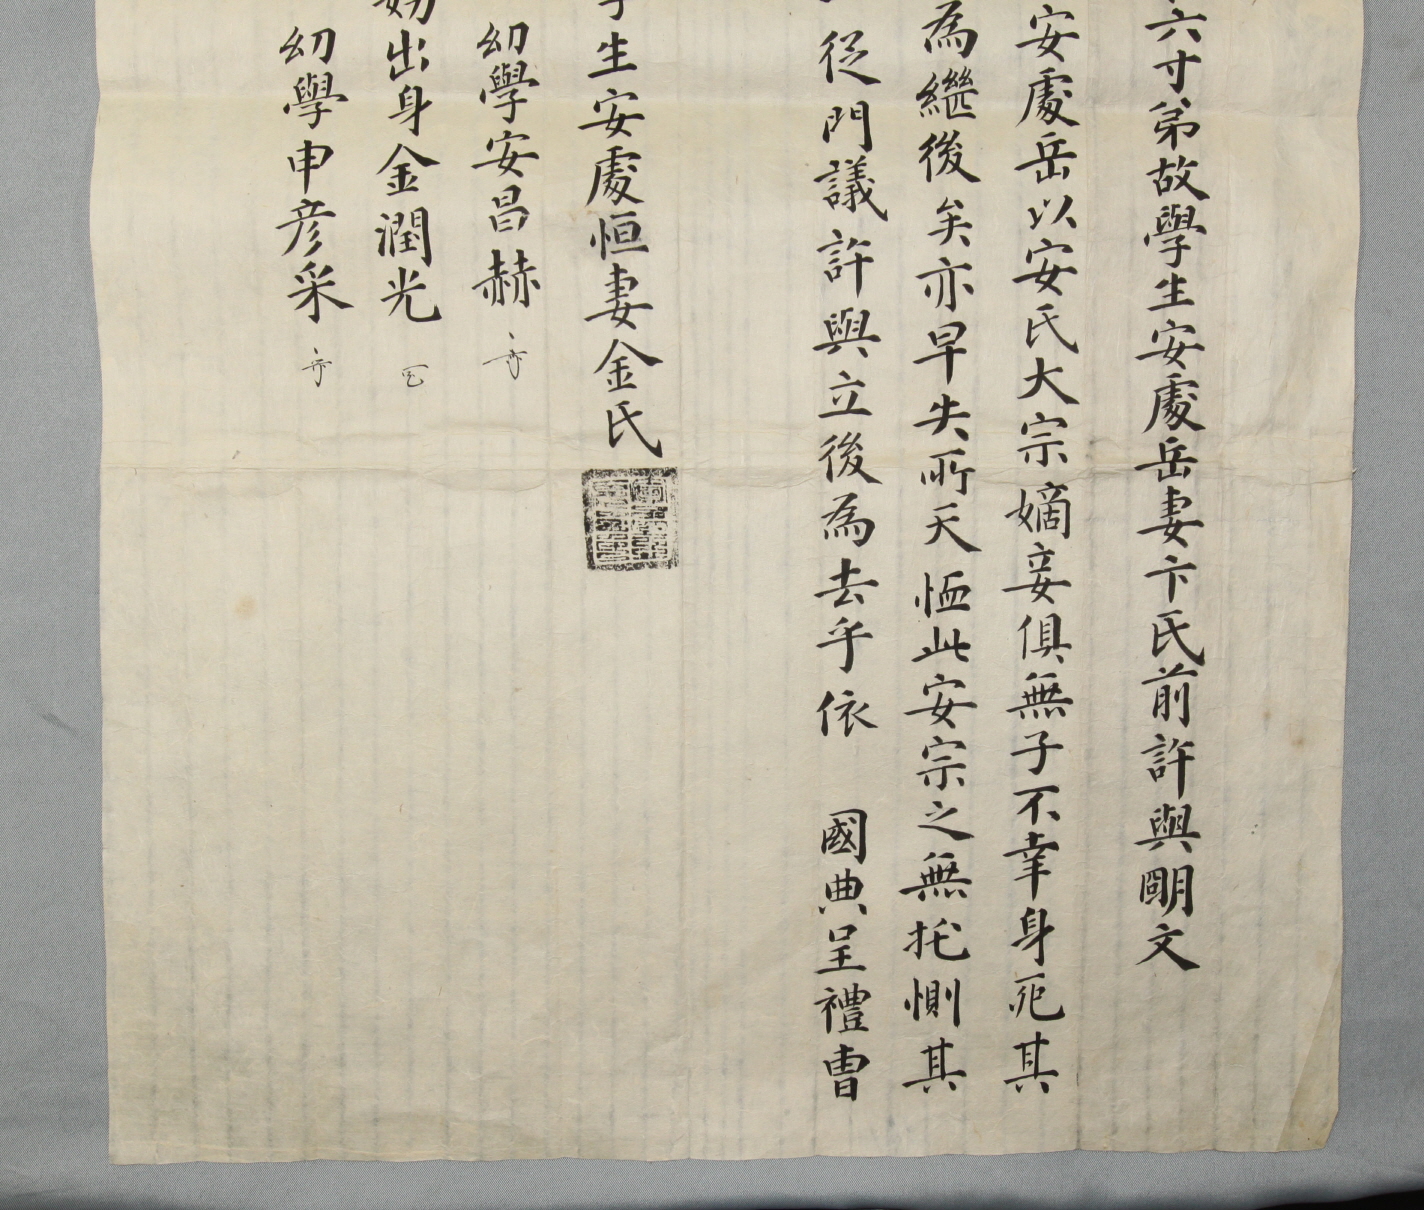 六寸弟故學生安處岳妻卞氏前許與明文
安處岳以安氏大宗嫡妾俱無子不幸身死其
為繼後矣亦早失所天恤此安宗之無托惻其
從門議許與立後為去乎依 國典呈禮曹
生安處恒妻金氏
幼學安昌赫
出身金潤光
幼學申彦采